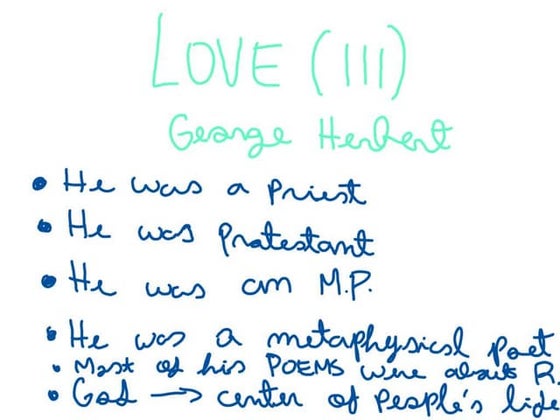 LOVE (III)
George Herbert
• He was a priest
• He was protestant
• He was an M.P.
• He was a metaphysical poet
• Most of his POEMS were about R.
• God → center of people's life